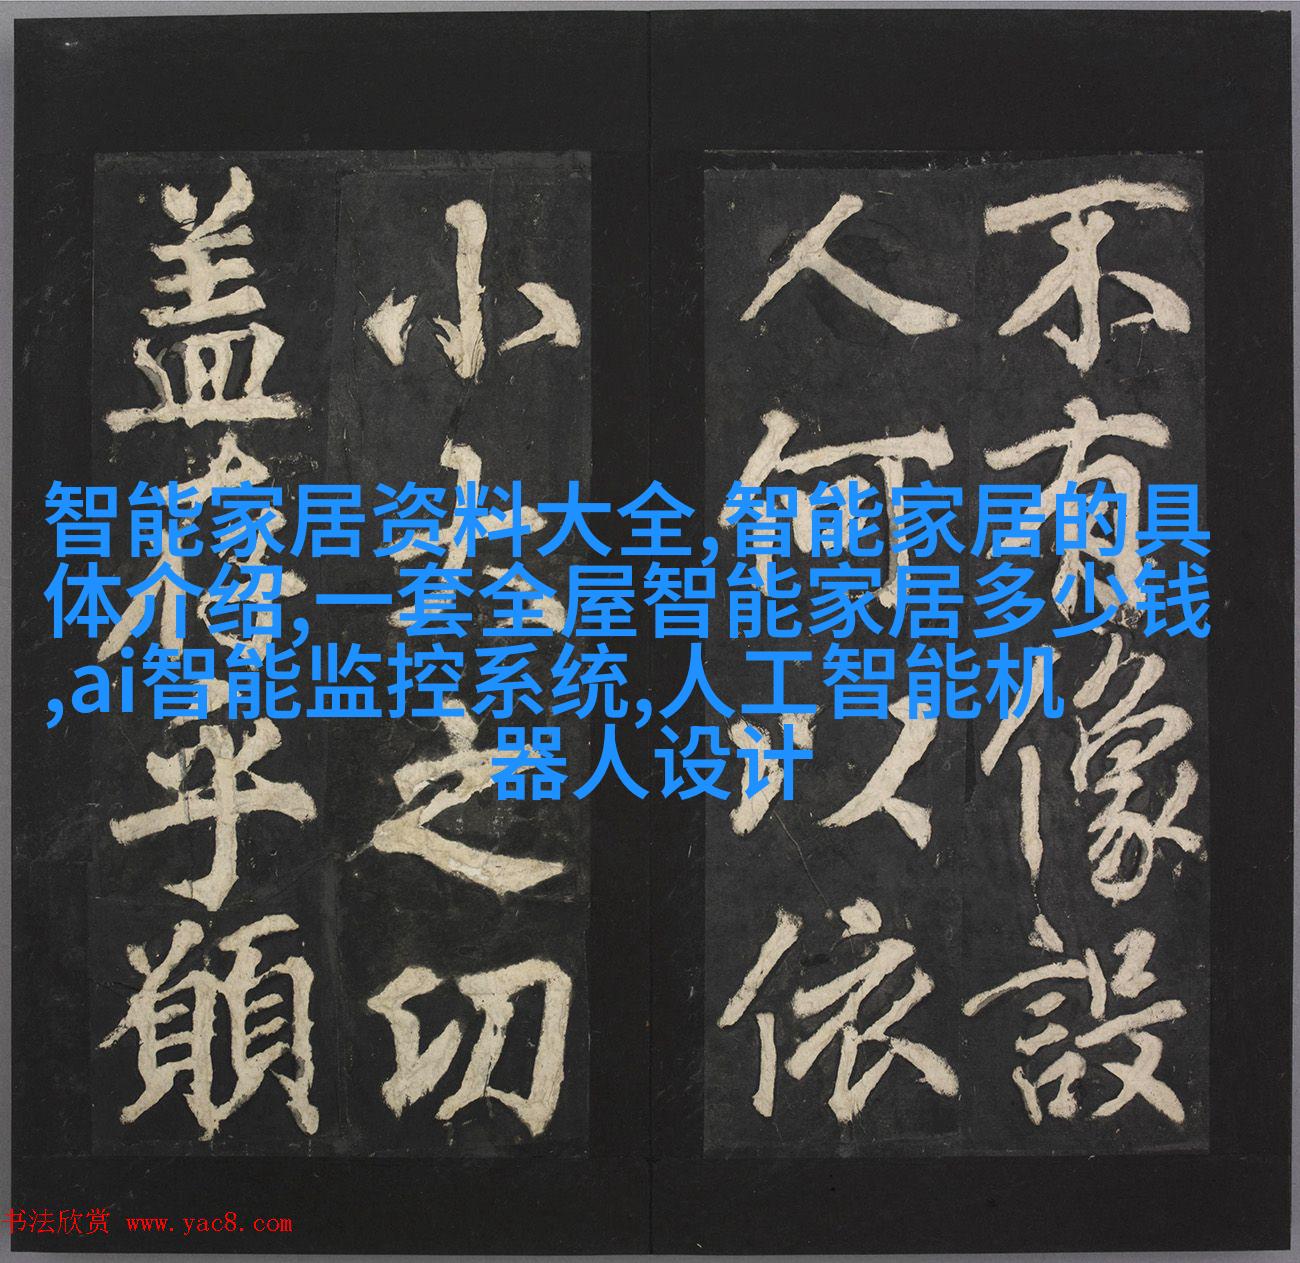 不有像設
人何以依
小大之切
盖
智能家居资料大全,智能家居的具
体介绍,一套全屋智能家居多少钱
,ai智能监控系统,人工智能机
器人设计
书法欣赏 www.yac8.com